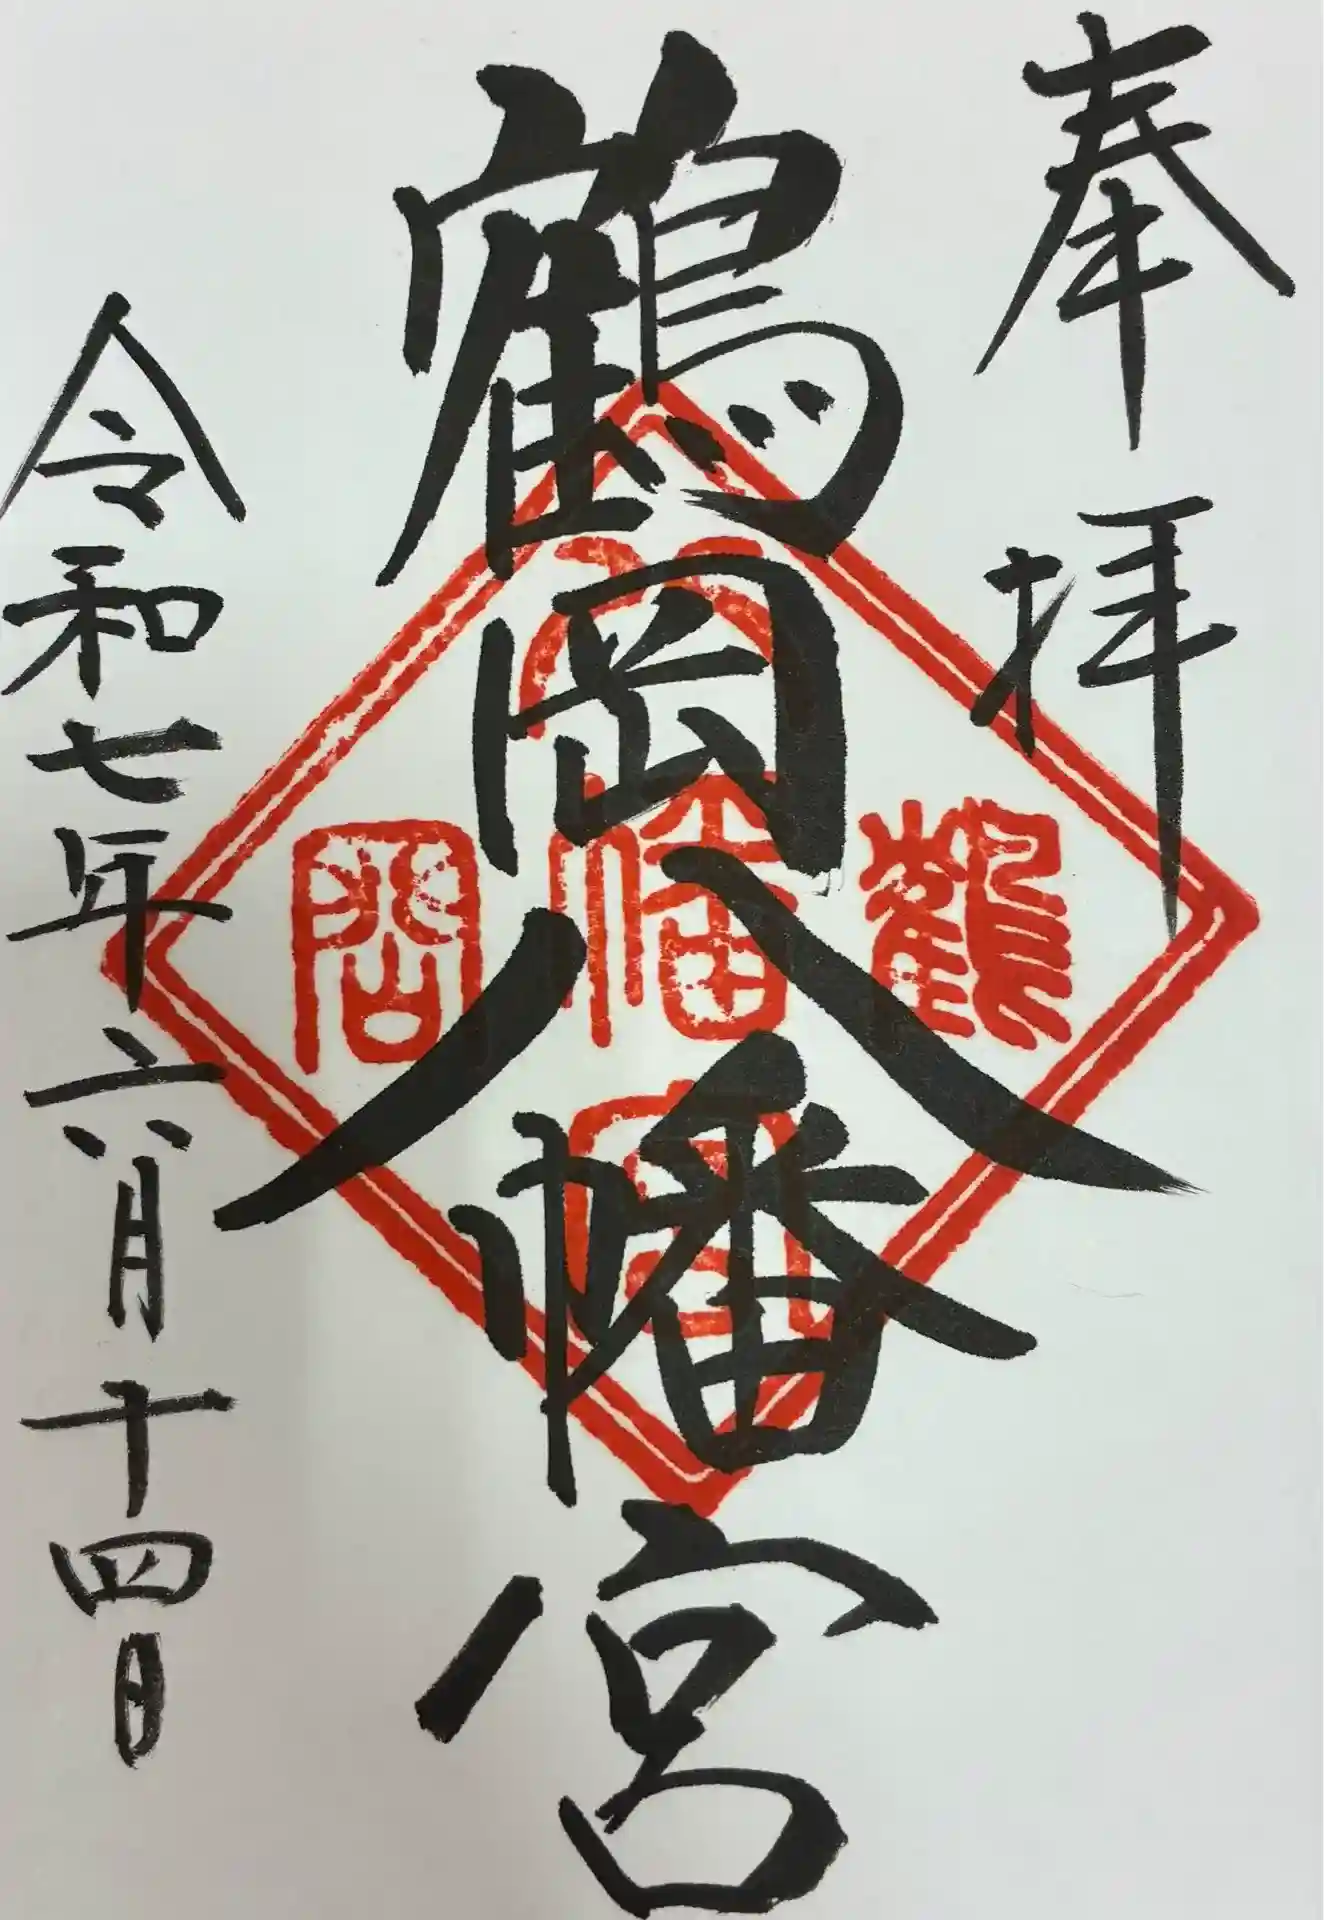 奉拝
鶴岡八幡宮
鶴
八
幡
宮
岡
令和七年六月十四日